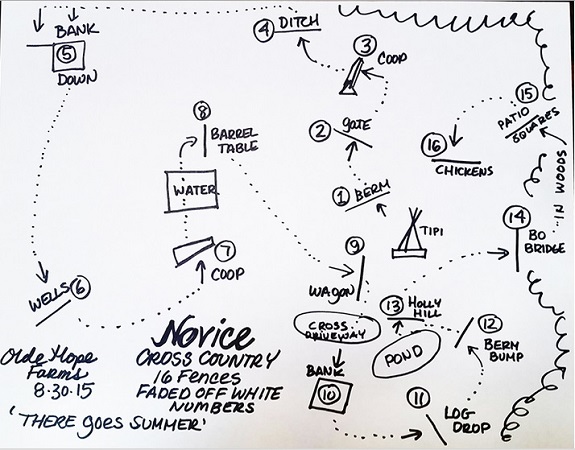 ④ DITCH
BANK
⑤
DOWN
③
COOP
⑮
PATIO
SQUARES
⑧
BARREL
TABLE
② gATE
⑯
CHICKENS
IN WOODS
WATER
① BERM
TIPI
⑭
BO
BRIDGE
⑦
COOP
⑨
WAGON
WELLS ⑥
⑬ HOLLY
HILL
CROSS
DRIVEWAY
POND
⑫
BERM
BUMP
BANK
⑩
⑪
LOG
DROP
Novice
CROSS COUNTRY
16 FENCES
FADED OFF WHITE
NUMBERS
Olde Hope
Farms
8-30-15
'THERE goes SUMMER'